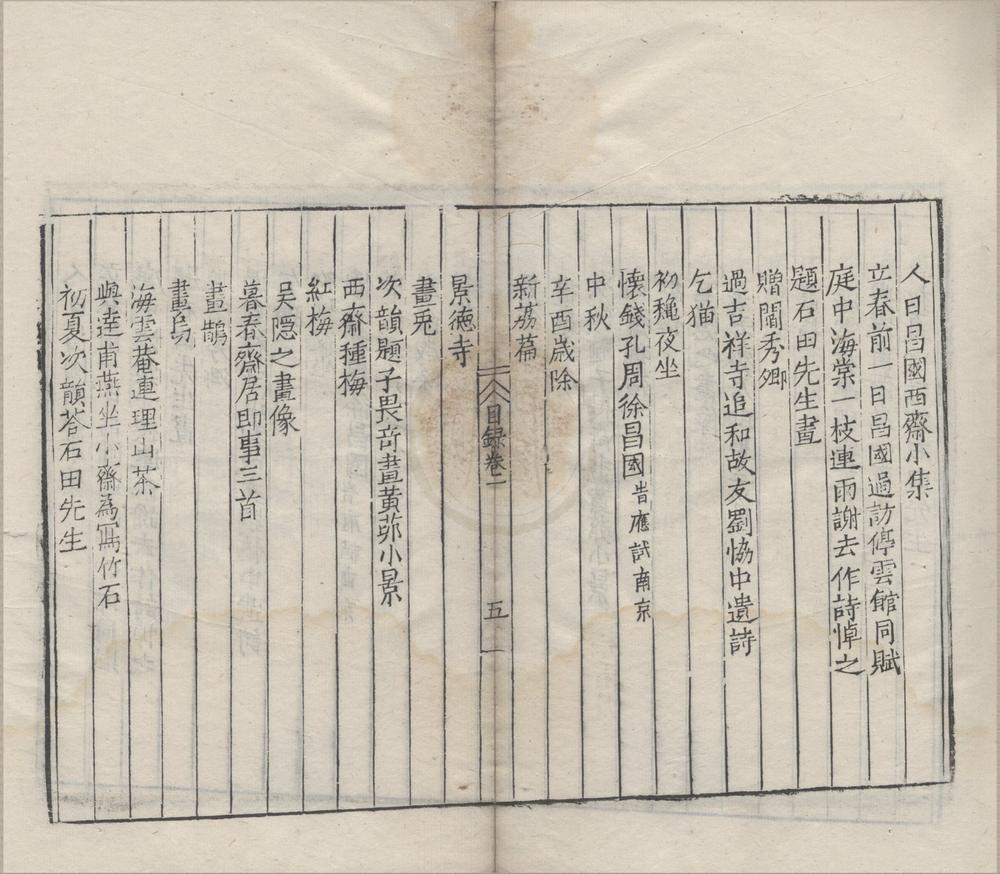 人日昌國西齋小集
立春前一日昌國過訪停雲館同賦
庭中海棠一枝連雨謝去作詩悼之
題石田先生畫
贈閻秀卿
過吉祥寺追和故友劉協中遺詩
乞猫
初龝夜坐
懷錢孔周徐昌國 昔應試南京
中秋
辛酉歲除
新荔篇
目録卷一
五
景德寺
畫兎
次韻題子畏所畫黄茆小景
西齋種梅
紅梅
吳隠之畫像
暮春齋居即事三首
畫鵲
畫烏
海雲菴連理山茶
與逵甫燕坐小齋為冩竹石
初夏次韻荅石田先生